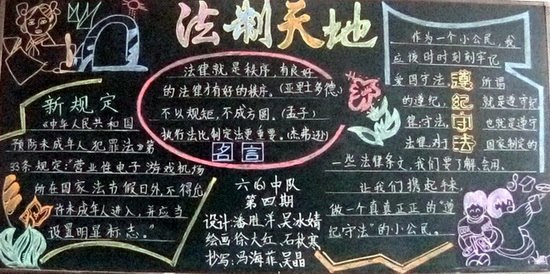 法制天地
新规定
《中华人民共和国
预防未成年人犯罪法》第
33条规定:"营业性电子游戏机场
所在国家法节假日外不得允
许未成年人进入,并应当
设置明显标志。"
法律就是秩序,有良好
的法律才有好的秩序。(亚里士多德)
不以规矩,不成方圆。(孟子)
执行法比制定法更重要。(杰弗逊)
名言
六(6)中队
第四期
设计:潘胜洋、吴冰婧
绘画:徐大红、石秋寒
抄写:冯海菲、吴晶
作为一个小公民,我
应该时时刻刻牢记
爱国守法,遵纪守法
所谓
的遵纪,
就是遵守纪
律,守法,
也就是遵守
法律,对于
国家制定的
一些法律条文,我们要了解、会用。
让我们携起手来,
做一个真真正正的"遵
纪守法"的小公民。